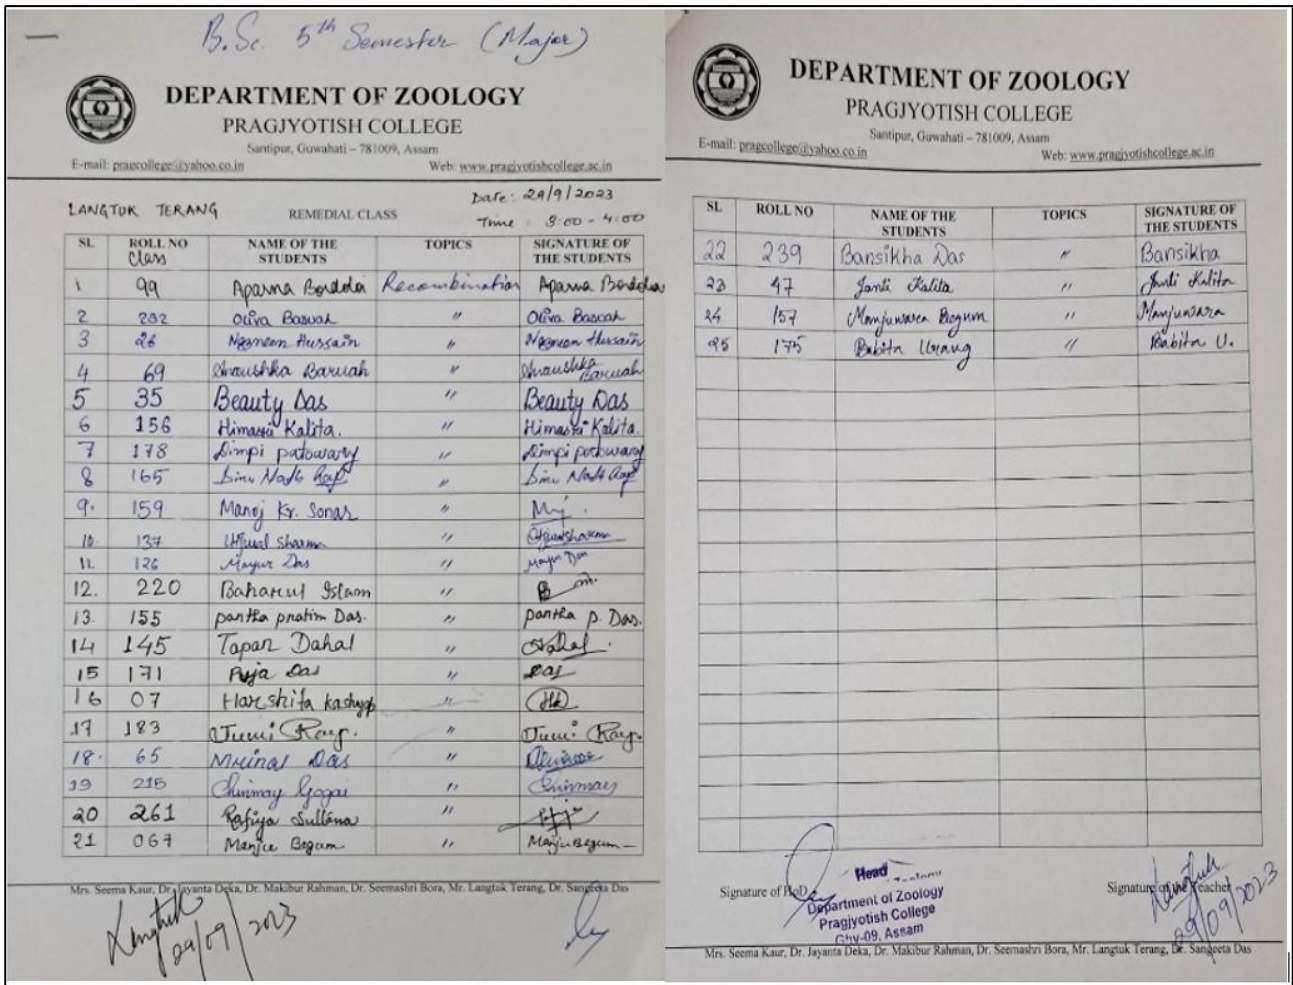 B.Sc. 5th Semester (Major)
DEPARTMENT OF ZOOLOGY
PRAGJYOTISH COLLEGE
Santipur, Guwahati – 781009, Assam
E-mail: pragcollege@yahoo.co.in Web: www.pragjyotishcollege.ac.in
Date: 29/9/2023
LANGTUK TERANG REMEDIAL CLASS
Time : 3:00 - 4:00
SL ROLL NO Class NAME OF THE STUDENTS TOPICS SIGNATURE OF THE STUDENTS
1 99 Aparna Bordoloi Recombination Aparna Bordoloi
2 202 Oliva Baruah " Oliva Baruah
3 26 Hussain " Hussain
4 69 Anoushka Baruah " Anoushka Baruah
5 35 Beauty Das " Beauty Das
6 156 Himasri Kalita. " Himasri Kalita.
7 178 Dimpi patowary " Dimpi patowary
8 165 Nath "  Nath
9. 159 Manoj Kr. Sonar "
10. 137 Ujjwal Sharma "
11. 126 Mayur Das " Mayur Das
12. 220 Baharul Islam "
13. 155 partha pratim Das. " partha p. Das.
14 145 Tapan Dahal " Dahal
15 171 Puja Das " Das
16 07 Harshita Kashyap " HK
17 183 Jumi Ray. " Jumi Ray.
18. 65 Mrinal Das "
19 215 Chinmay Gogoi " Chinmay
20 261 Rafiya Sultana "
21 067 Manju Begum " Manju Begum
Mrs. Seema Kaur, Dr. Jayanta Deka, Dr. Makibur Rahman, Dr. Seemashri Bora, Mr. Langtuk Terang, Dr. Sangeeta Das
Langtuk
29/09/2023
DEPARTMENT OF ZOOLOGY
PRAGJYOTISH COLLEGE
Santipur, Guwahati – 781009, Assam
E-mail: pragcollege@yahoo.co.in Web: www.pragjyotishcollege.ac.in
SL ROLL NO NAME OF THE STUDENTS TOPICS SIGNATURE OF THE STUDENTS
22 239 Bansikha Das " Bansikha
23 47 Janti Kalita " Janti Kalita
24 157 Manjuwara Begum " Manjuwara
25 175 Babita Urang " Babita U.
Signature of HoD
Head
Department of Zoology
Pragjyotish College
Ghy-09, Assam
Signature of the Teacher
Langtuk
29/09/2023
Mrs. Seema Kaur, Dr. Jayanta Deka, Dr. Makibur Rahman, Dr. Seemashri Bora, Mr. Langtuk Terang, Dr. Sangeeta Das